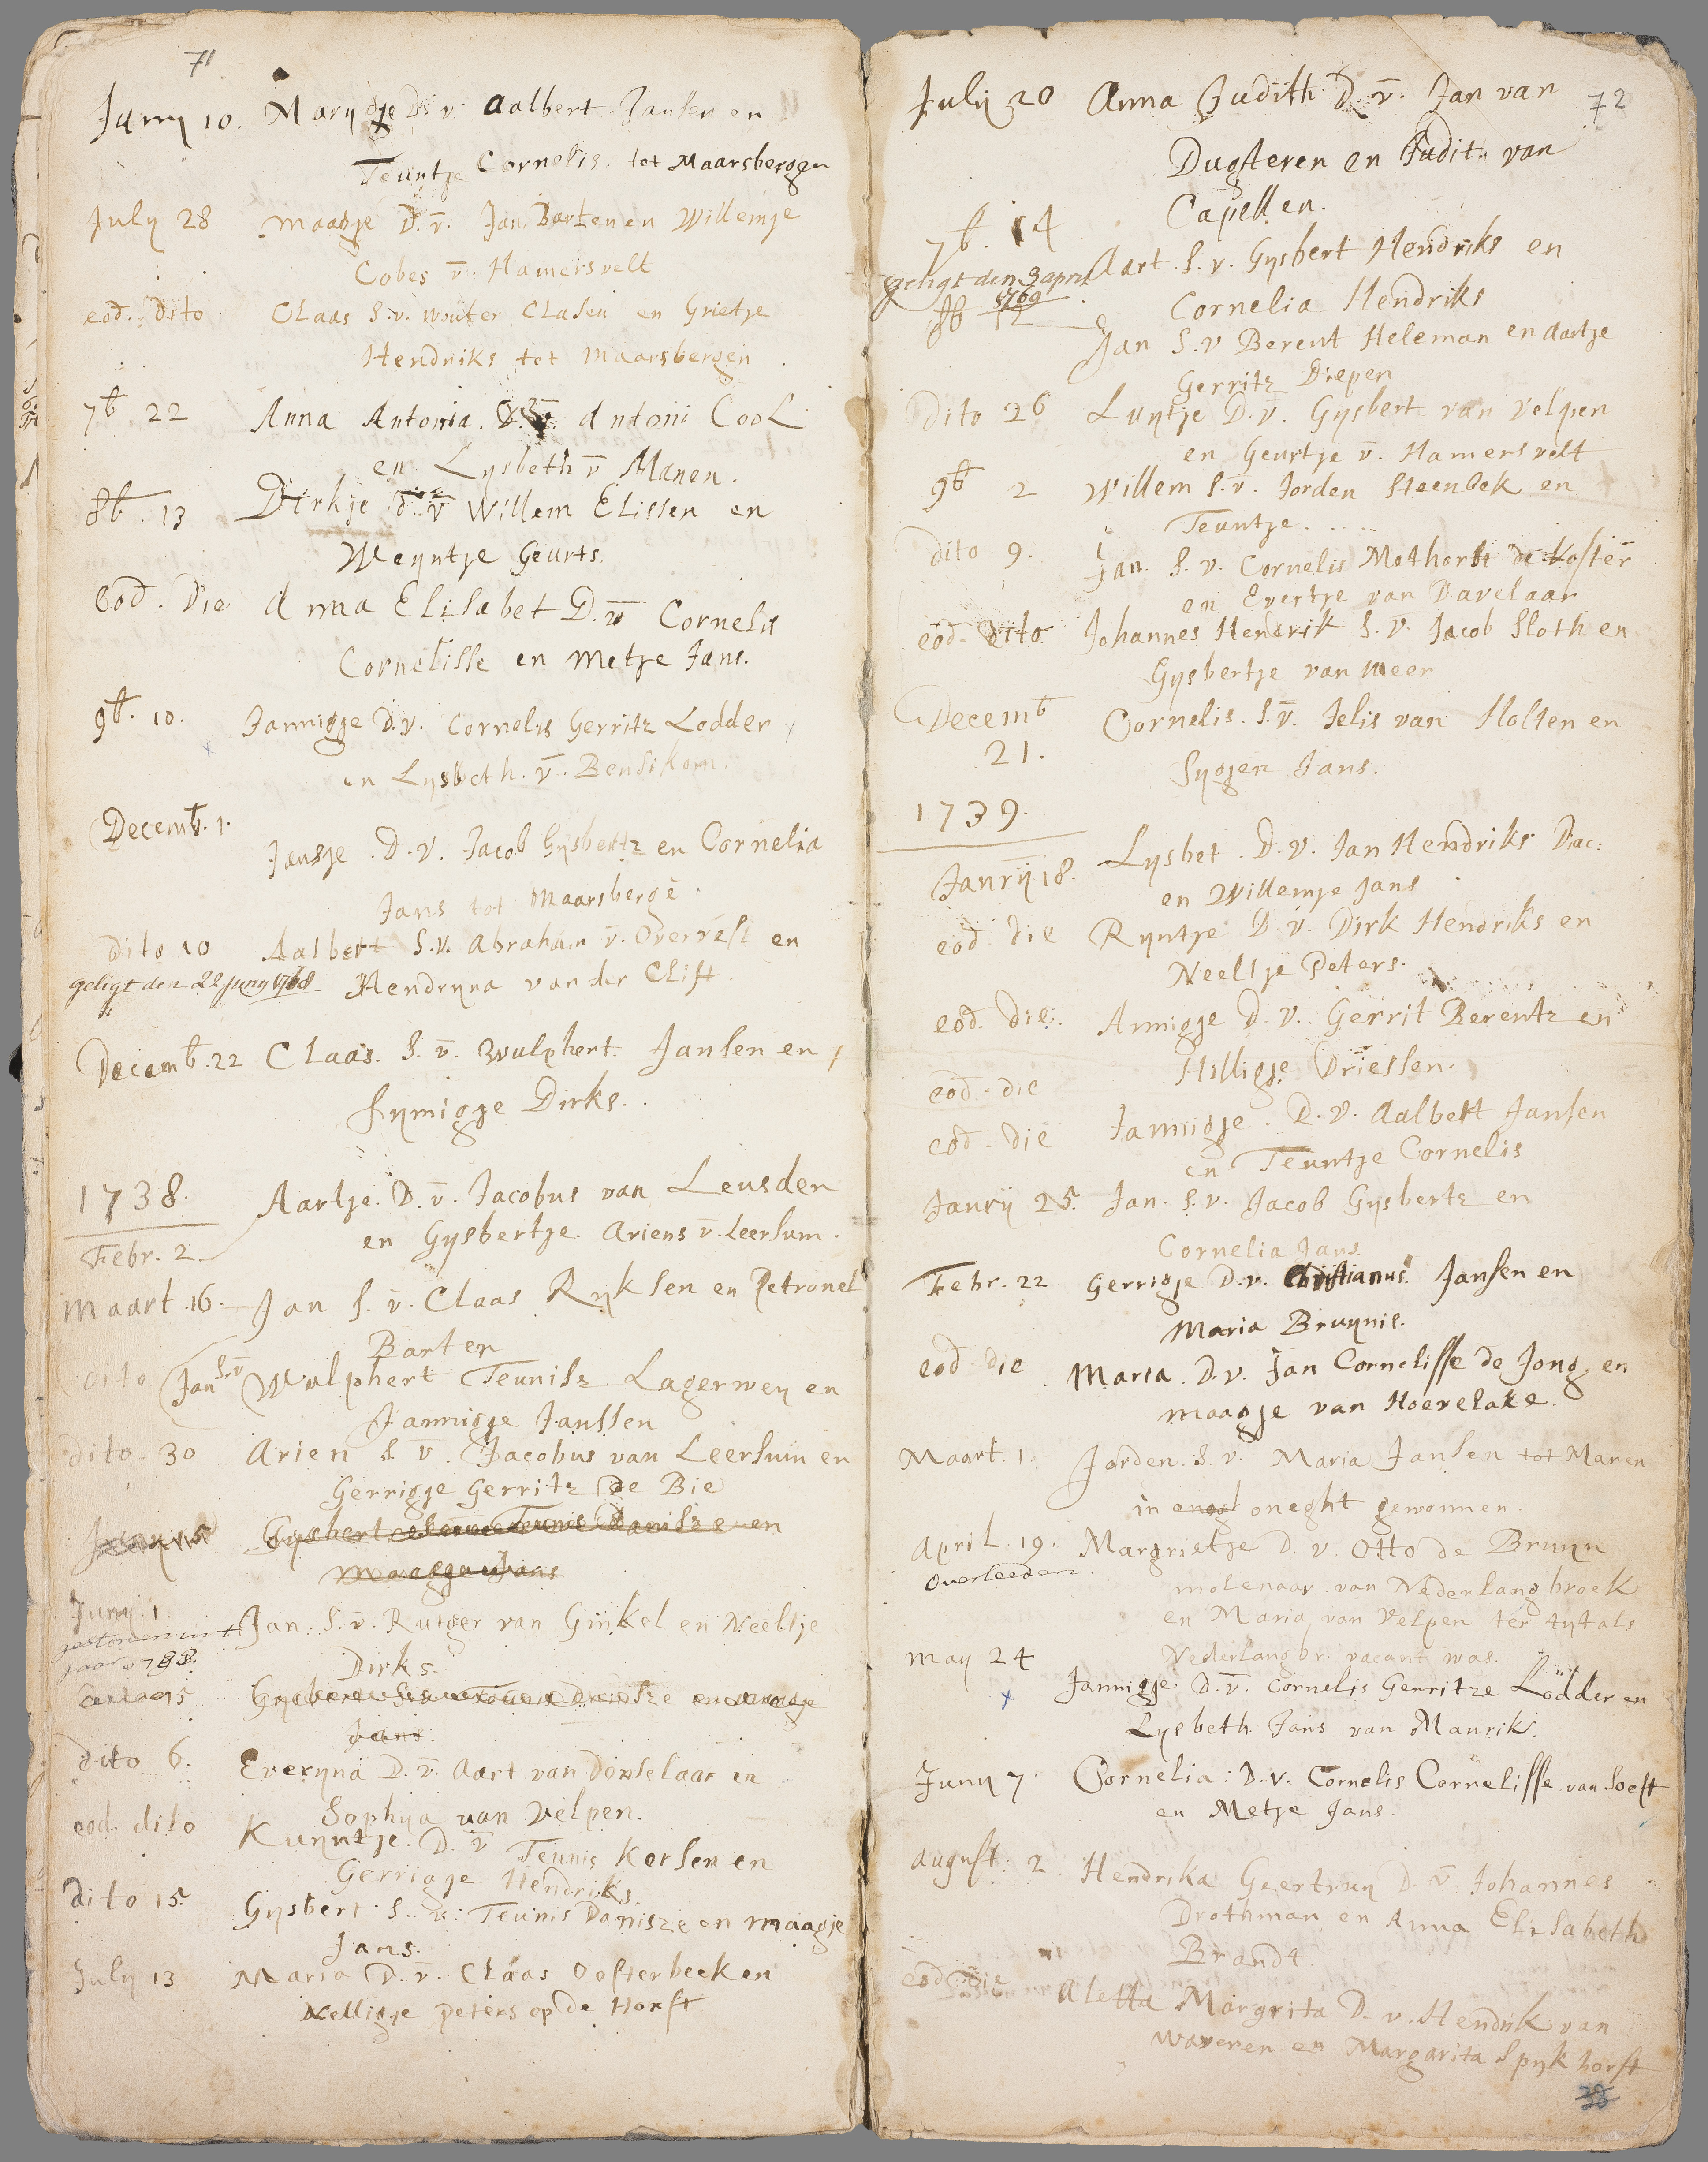 71
Juny 10. Marijgje D. v. Aalbert Jansen en
Teuntje Cornelis. tot Maarsbergen
July 28 maatje D. v̄. Jan Barten en Willemje
Cobes v̄. Hamersvelt
eod. dito Claas S. v. wouter Clasen en Grietje
Hendriks tot maarsbergen
7b. 22 Anna Antonia. D. v̄. Antoni Cool
en. Lysbeth v̄ Manen.
8b. 13 Dirkje d. v̄ Willem Elissen en
Weyntje Geurts.
Eod. Die Anna Elisabet D. v̄ Cornelis
Cornelisse en Metje Jans.
9b. 10. Jannigje D. v. Cornelis Gerritz Lodder
en Lysbeth. v̄. Bensikom.
Decemb. 1. Jansje. D. v. Jacob Gysbertz en Cornelia
Jans tot Maarsbergē.
dito 10 Aalbert S. v. Abraham v̄. Overrest en
geligt den 22 Juny 1768. Hendryna van der Clift
Decemb. 22 Claas. S. v̄. Wulphert. Jansen en
Symigje Dirks.
1738. Aartje. D. v̄. Jacobus van Leusden
Febr. 2. en Gysbertje. Ariens v̄. Leersum.
maart 16. Jan S. v̄. Claas Ryksen en Petronel
Barten
dito Jan S. v̄ Wulphert Teunisz Lagerwey en
Jannigje Janssen
dito. 30 Arien S. v. Jacobus van Leersum en
Gerrigje Gerritz De Bie
15 Gysbert Teunis Danisze en
maagje Jans
Juny 1. Jan. S. v̄. Rutger van Ginkel en Neeltje
gestorven in t
jaar 1788. Dirks.
15 Gysbert S. v. Teunis Danisze en maagje
Jans
dito 6. Everyna D. v̄. Aart van Donselaar en
Sophya van Velpen.
eod. dito Kuyntje. D. v̄ Teunis Korsen en
Gerrigje Hendriks.
dito 15. Gysbert. S. v. Teunis Danisze en maagje
Jans.
July 13 Maria D. v̄. Claas Oosterbeek en
Nelligje Peters op de Horst
July 20 Anna Judith D. v̄. Jan van 72
Dugteren en Judit. van
Capellen.
7b. 14 Aart. S. v. Gysbert Hendriks en
geligt den 3 april
1769 Cornelia Hendriks
8b 12 Jan S. v Berent Heleman en Aartje
Gerritz Diepen
Dito 26 Luytje D. v̄. Gysbert van Velpen
en Geurtje v̄. Hamersvelt
9b 2 Willem S. v̄. Jorden Steenbek en
Teuntje. . . . .
dito 9. Jan. S. v. Cornelis Methorst de Koster
en Evertje van Davelaar
eod. Dito. Johannes Hendrik S. v. Jacob Sloth en
Gysbertje van Meer
Decemb Cornelis. S. v̄. Jelis van Holten en
21. Sygjen Jans.
1739.
Janry 18. Lysbet. D. v. Jan Hendriks Diac:
en Willemje Jans
eod die Ryntje D. v. Dirk Hendriks en
Neeltje Peters.
eod. die. Annigje D. v. Gerrit Berentz en
Hilligje Driessen.
eod. die
eod. die Jannigje. D. v. Aalbert Jansen
en Teuntje Cornelis
Janry 25. Jan. S. v. Jacob Gysbertz en
Cornelia Jans.
Febr. 22 Gerrigje D. v. Christianus Jansen en
Maria Bruynis.
eod die Maria. D. v. Jan Cornelisse de Jong. en
maagje van Hoevelake.
Maart. 1. Jorden. S. v. Maria Jansen tot Manen
in oneght gewonnen.
April. 19. Margrietje D. v. Otto de Bruyn
Overleeden molenaar van Nederlangbroek
en Maria van Velpen ter tyt als
Nederlangbr. vacant was.
may 24 Jannigje D. v̄. Cornelis Gerritze Lodder en
Lysbeth Jans van Maurik.
Juny 7. Cornelia: D. v. Cornelis Cornelisse van Soest
en Metje Jans.
August: 2 Hendrika Geertruy D. v̄ Johannes
Drothman en Anna Elisabeth
Brandt.
eod. Die Aletta Margrita D. v. Hendrik van
Waveren en Margarita Spykhorst